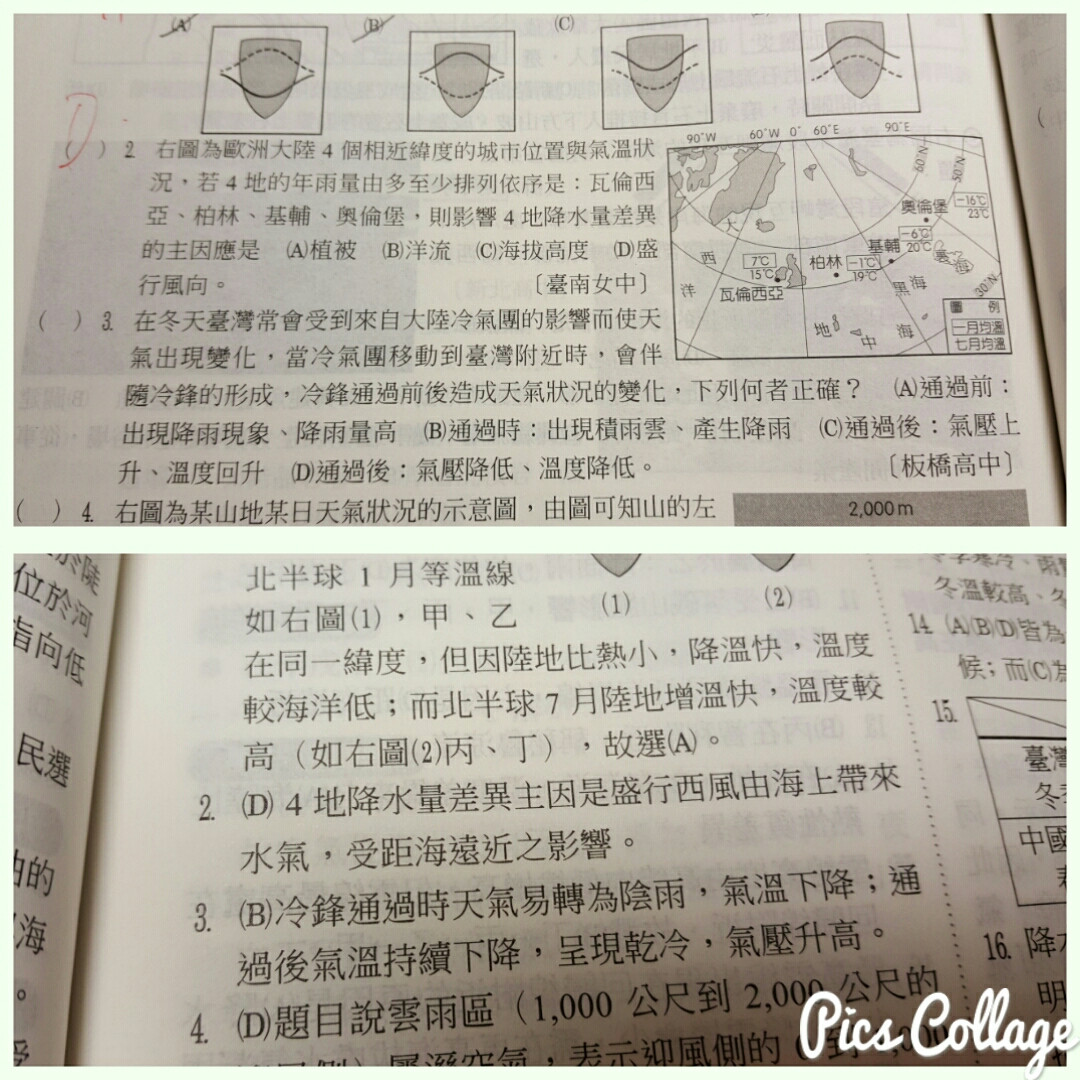 (A)
(B)
(C)
D
( ) 2. 右圖為歐洲大陸 4 個相近緯度的城市位置與氣溫狀
況，若 4 地的年雨量由多至少排列依序是：瓦倫西
亞、柏林、基輔、奧倫堡，則影響 4 地降水量差異
的主因應是 (A)植被 (B)洋流 (C)海拔高度 (D)盛
行風向。 〔臺南女中〕
90°W 60°W 0° 60°E 90°E
60°N 50°N
奧倫堡 -16℃ 23℃
基輔 -6℃ 20℃
柏林 -1℃ 19℃
瓦倫西亞 7℃ 15℃
大
西
洋
黑海
裏海
30°N
地中海
圖例
一月均溫
七月均溫
( ) 3. 在冬天臺灣常會受到來自大陸冷氣團的影響而使天
氣出現變化，當冷氣團移動到臺灣附近時，會伴
隨冷鋒的形成，冷鋒通過前後造成天氣狀況的變化，下列何者正確？ (A)通過前：
出現降雨現象、降雨量高 (B)通過時：出現積雨雲、產生降雨 (C)通過後：氣壓上
升、溫度回升 (D)通過後：氣壓降低、溫度降低。 〔板橋高中〕
( ) 4. 右圖為某山地某日天氣狀況的示意圖，由圖可知山的左
2,000 m
北半球 1 月等溫線
如右圖(1)，甲、乙
(1) (2)
在同一緯度，但因陸地比熱小，降溫快，溫度
較海洋低；而北半球 7 月陸地增溫快，溫度較
高（如右圖(2)丙、丁），故選(A)。
2. (D) 4 地降水量差異主因是盛行西風由海上帶來
水氣，受距海遠近之影響。
3. (B)冷鋒通過時天氣易轉為陰雨，氣溫下降；通
過後氣溫持續下降，呈現乾冷，氣壓升高。
4. (D)題目說雲雨區（1,000 公尺到 2,000 公尺的
位於河
指向低
民選
的
海
冬溫較高、冬
14. (A)(B)(D)皆為
候；而(C)為
15.
臺灣
冬
中國
16. 降
明
Pics Collage